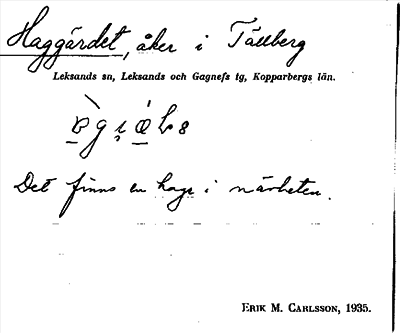 Haggärdet, åker i Tällberg
Leksands sn, Leksands och Gagnefs tg, Kopparbergs län.
Det finns en hage i närheten.
ERIK M. CARLSSON, 1935.